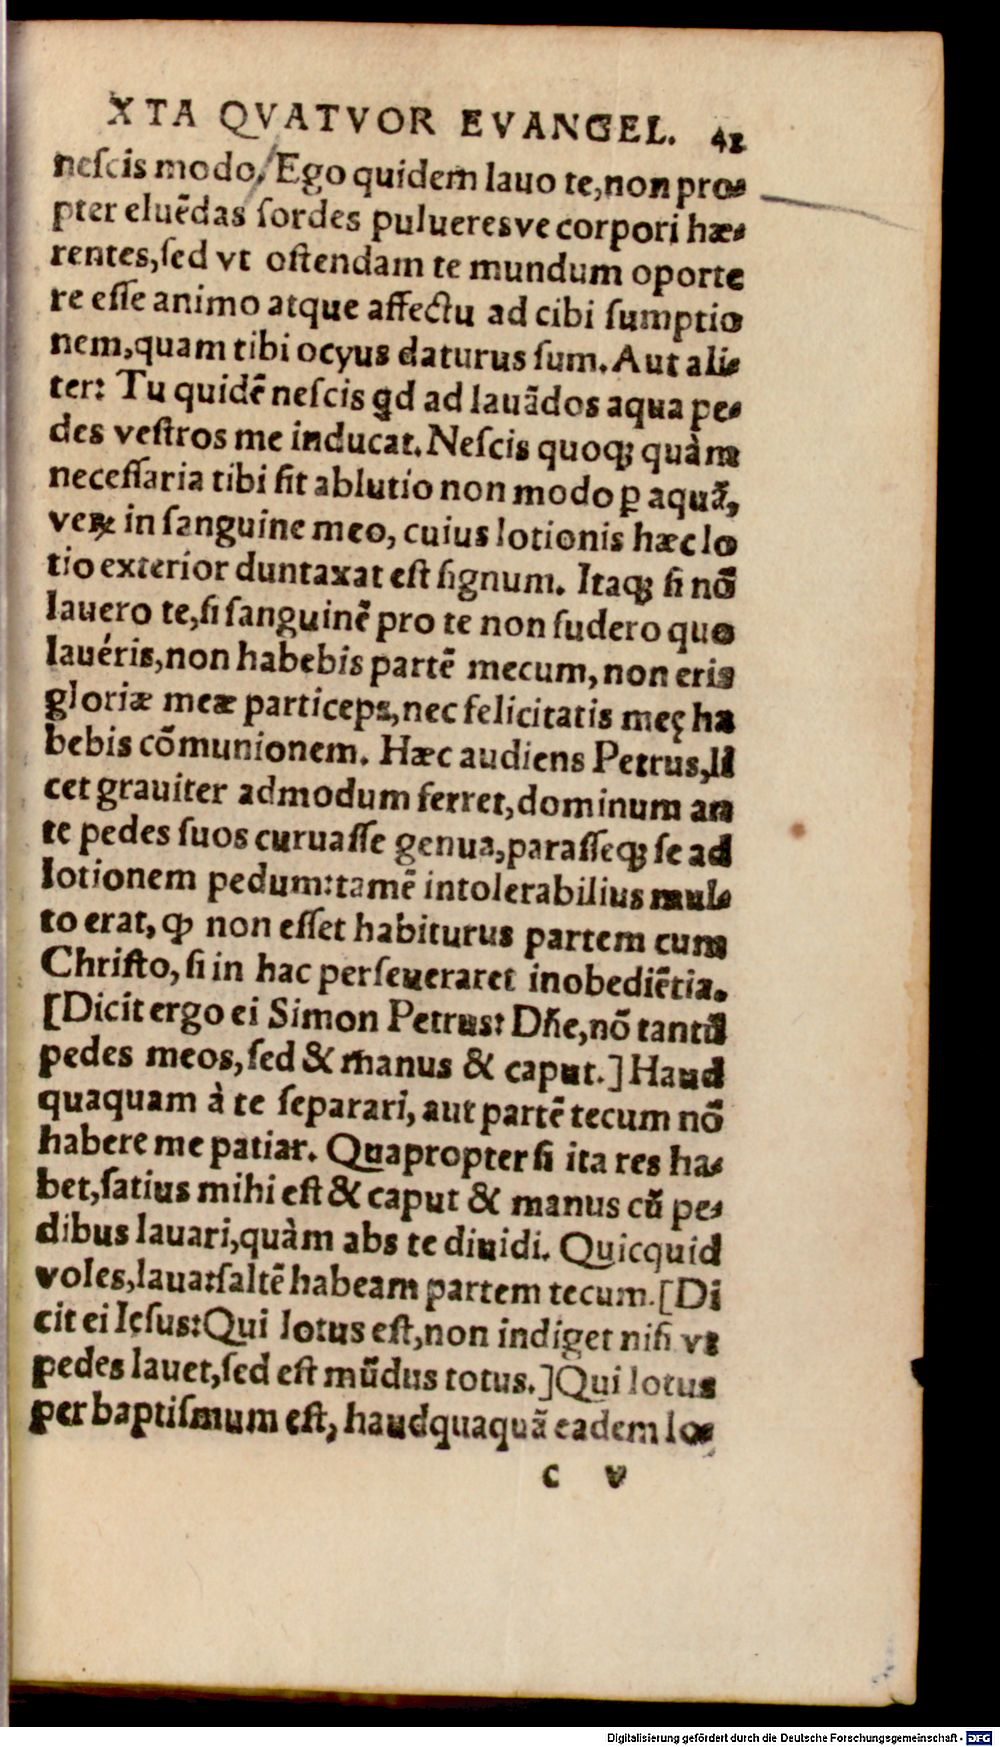 XTA QVATVOR EVANGEL. 42
neſcis modo. Ego quidem lauo te, non pro-
pter eluēdas ſordes pulueresve corpori hæ-
rentes, ſed vt oſtendam te mundum oporte
re eſſe animo atque affectu ad cibi ſumptio
nem, quam tibi ocyus daturus ſum. Aut ali-
ter: Tu quidē neſcis qd ad lauādos aqua pe-
des veſtros me inducat. Neſcis quoq; quàm
neceſſaria tibi ſit ablutio non modo ꝑ aquā,
veꝝ in ſanguine meo, cuius lotionis hæc lo
tio exterior duntaxat eſt ſignum. Itaq; ſi nō
lauero te, ſi ſanguinē pro te non ſudero quo
lauéris, non habebis partē mecum, non eris
gloriæ meæ particeps, nec felicitatis meę ha
bebis cōmunionem. Hæc audiens Petrus, li
cet grauiter admodum ferret, dominum an
te pedes ſuos curuaſſe genua, paraſſeq; ſe ad
lotionem pedum: tamē intolerabilius mul-
to erat, ꝙ non eſſet habiturus partem cum
Chriſto, ſi in hac perſeueraret inobediētia.
[Dicit ergo ei Simon Petrus: Dñe, nō tantū
pedes meos, ſed & manus & caput.] Haud
quaquam à te ſeparari, aut partē tecum nō
habere me patiar. Quapropter ſi ita res ha-
bet, ſatius mihi eſt & caput & manus cū pe-
dibus lauari, quàm abs te diuidi. Quicquid
voles, laua: ſaltē habeam partem tecum. [Di
cit ei Ieſus: Qui lotus eſt, non indiget niſi vt
pedes lauet, ſed eſt mūdus totus.] Qui lotus
per baptiſmum eſt, haudquaquā eadem lo-
c v
Digitalisierung gefördert durch die Deutsche Forschungsgemeinschaft - DFG